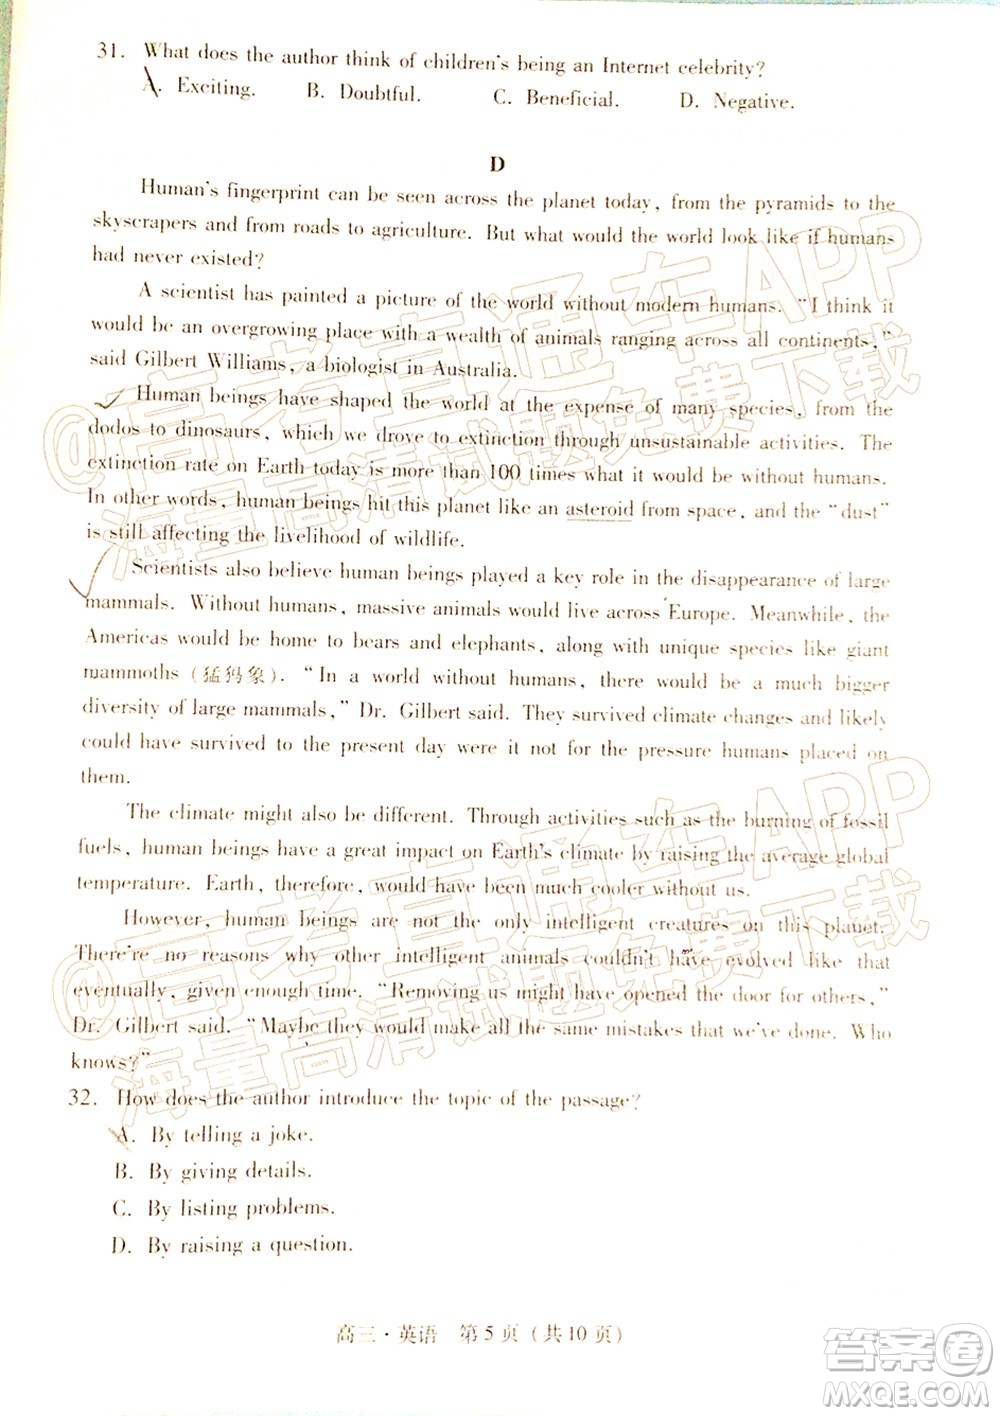 31. What does the author think of children's being an Internet celebrity?
A. Exciting. B. Doubtful. C. Beneficial. D. Negative.
D
Human's fingerprint can be seen across the planet today, from the pyramids to the
skyscrapers and from roads to agriculture. But what would the world look like if humans
had never existed?
A scientist has painted a picture of the world without modern humans. "I think it
would be an overgrowing place with a wealth of animals ranging across all continents,"
said Gilbert Williams, a biologist in Australia.
Human beings have shaped the world at the expense of many species, from the
dodos to dinosaurs, which we drove to extinction through unsustainable activities. The
extinction rate on Earth today is more than 100 times what it would be without humans.
In other words, human beings hit this planet like an asteroid from space, and the "dust"
is still affecting the livelihood of wildlife.
Scientists also believe human beings played a key role in the disappearance of large
mammals. Without humans, massive animals would live across Europe. Meanwhile, the
Americas would be home to bears and elephants, along with unique species like giant
mammoths (猛犸象). "In a world without humans, there would be a much bigger
diversity of large mammals," Dr. Gilbert said. They survived climate changes and likely
could have survived to the present day were it not for the pressure humans placed on
them.
The climate might also be different. Through activities such as the burning of fossil
fuels, human beings have a great impact on Earth's climate by raising the average global
temperature. Earth, therefore, would have been much cooler without us.
However, human beings are not the only intelligent creatures on this planet.
There're no reasons why other intelligent animals couldn't have evolved like that
eventually, given enough time. "Removing us might have opened the door for others,"
Dr. Gilbert said. "Maybe they would make all the same mistakes that we've done. Who
knows?"
32. How does the author introduce the topic of the passage?
A. By telling a joke.
B. By giving details.
C. By listing problems.
D. By raising a question.
高三·英语 第5页(共10页)
@高考直通车APP
海量高清试题免费下载
@高考直通车APP
海量高清试题免费下载
答案圈
MXQE.COM